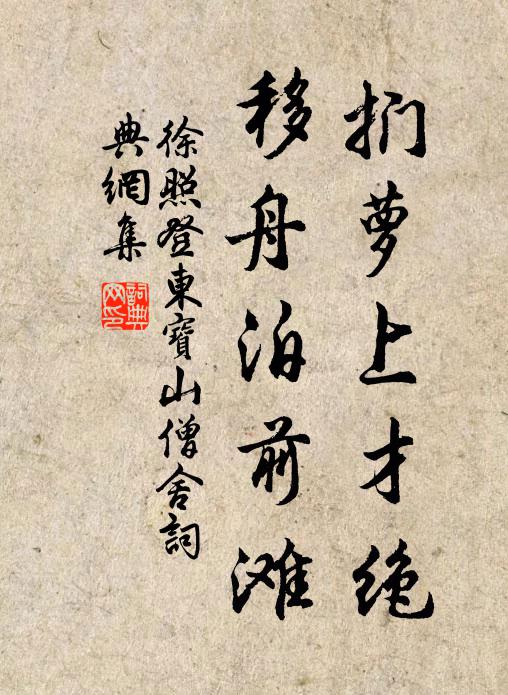 扪萝上才绝
移舟泊前滩
徐照登東寶山僧舍詞
典網集
詞典
网印